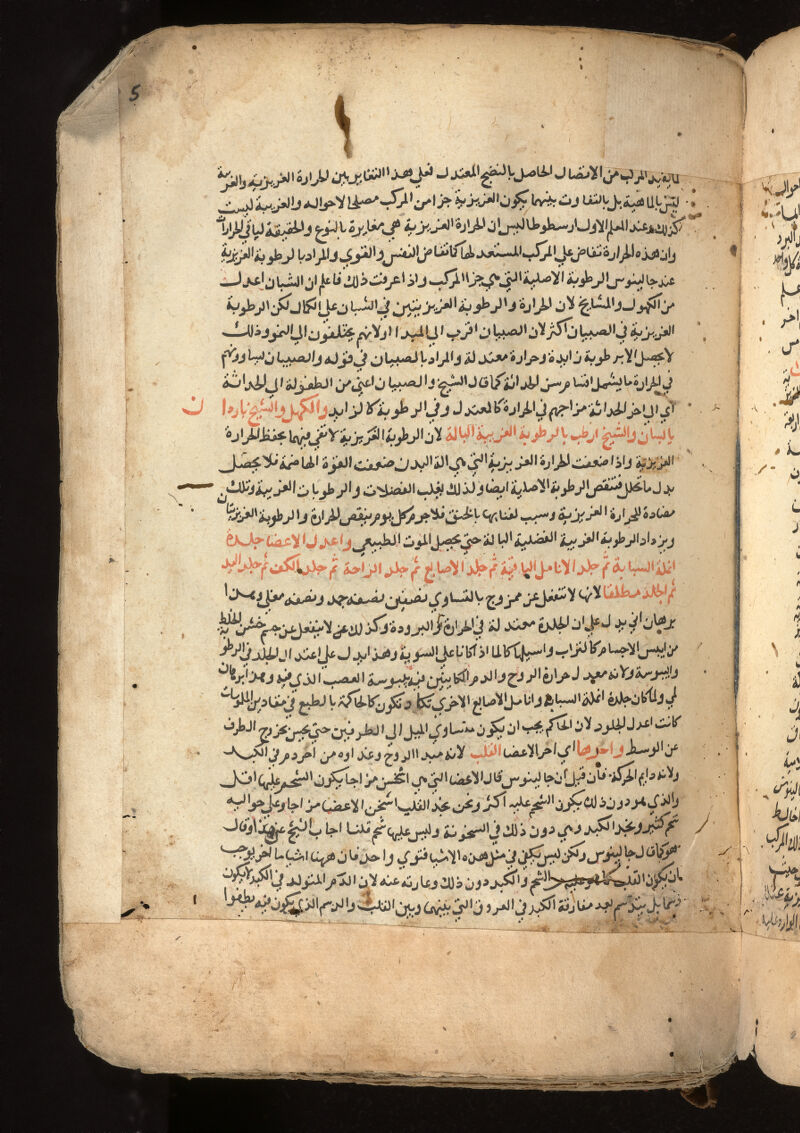 5
لما يفيد المركب من الانفصال الحاصل بالنضج المعتدل فعلى هذا التغاير بين الحرارة الغريزية والغريبة
ليس بالماهية بل بالتفاوت بينهما بكون الغريزية جزا من المركب مصلحا لاحواله والغريبة ليست
كذلك وعند المعلم الاول ارسطوطاليس ان الحرارة الغريزية هي مغايرة بالنوع والحقيقة لباقي الحرارات
وان هذه الحرارة تفاض على المركب المستعد لها كما تفاض النفس والقوي والمراد بالرطوبة الغريزية
عند جالينوس الرطوبة الاصلية التي هي جزا المركب واذا عرفت ذلك فاعلم ان الشبان اعدل
من الكهول والمشايخ لان الحرارة والرطوبة الغريزيتين في الشبان على الكمال لكن الرطوبة
الغريزية في الصبيان اكثر لان الصبيان اقرب الى المبدا اولانهم يحتلفون الى النمو وذلك
لا يحصل الا برطوبة زايدة وحرارة معتدلة والمراد بالصبيان في قوله والصبيان يساوونهم
في الحرارة ما يشمل اقسام سن الحداثة كما قال الشيخ والصبيان اعني من الطفولة الى الحداثة
اي الى اخر الحداثة مزاجهم في الحرارة كالمعتدل وفي الرطوبة كالزايد والكهل والشيخ باردان
يابسان والشيخ ارطب بالرطوبة الغريبة البالة لان الرطوبة الغريزية لا تفي فيهما بحفظ الحرارة
الغريزية واذا ضعفت الحرارة الغريزية التي هي الة البدن ضعفت القوة الهاضمة فلا يحصل
بدل ما تحلل فتنقص الرطوبة الاصلية ايضا ولذلك يغلب الفضلات والرطوبات الغريبة وتلك
مضادة للحرارة الغريزية وسبب لفنايها بالخنق فلا جرم كل يوم ينقص الحرارة والرطوبة الغريزيتان
ويزداد الرطوبة الغريبة الفضلية البالة حتى يحصل الموت الطبيعي واعدل الاعضا جلدة
انملة السبابة ثم جلد الانامل الباقية ثم جلد الاصابع ثم جلد الراحة ثم جلد الكف ثم جلد اليد
ثم الجلد مطلقا لانها لا تنفعل عن ممزوج بالتساوي نصفين نصفه جمد ونصفه مغلي وهذا
برهان اني يدل على ان الجلدة معتدلة في الحرارة و البرودة وكذلك هي لا ينفعل عن جسم حسن الخلط
من ايبس الاجسام كالتراب واسيلها كالما اذا كانا على السوية وهذا يدل على اعتدال الجلد في الرطوبة
واليبوسة ولانه معدل حرارة الروح والدم الكاينين فيه بيبوسة العصب الذي فيه وهذا برهان
لمي ولما كان جلدة انملة السبابة وانامل الاصابع الاخري تكاد تكون كالحاكمة بالطبع في مقادير الملموسات
كانت اعدل الجلود لان الحاكم يجب ان يكون متساوي الميل الى الطرفين حتى يحس بخروج الطرف
عن الوسط واحرها اي احر الاعضا القلب لانه مبدا الروح وغذاوه من احر دم في الكبد
ولانه دايم الحركة فان قيل ان جالينوس قال الاعضا التي هي اسخن مزاجا يكون الشحم عليها اقل
والذي هو دون ذلك يكون الشحم عليه اكثر ونحن نجد القلب اسخن الاعضا مزاجا وعلى حواليه
شحم كثير ونجد الكبد وهي دون ذلك في السخونة وليس عليها شحم قلنا اجاب الشيخ عن هذا وقال
هو كما قال جالينوس ولكن ليس يكفي في مثل هذه الاشيا قوي واحد فان ههنا اشيا ما اخر يوجب
ان يكون القلب الشحم والكبد دون ذلك لان الدم المتولد في الكبد لا يكون
دسما بل يتدسم بعد مفارقة الكبد في العروق التي بينها وبين القلب والدسم الذي يكون فيه يطفوا